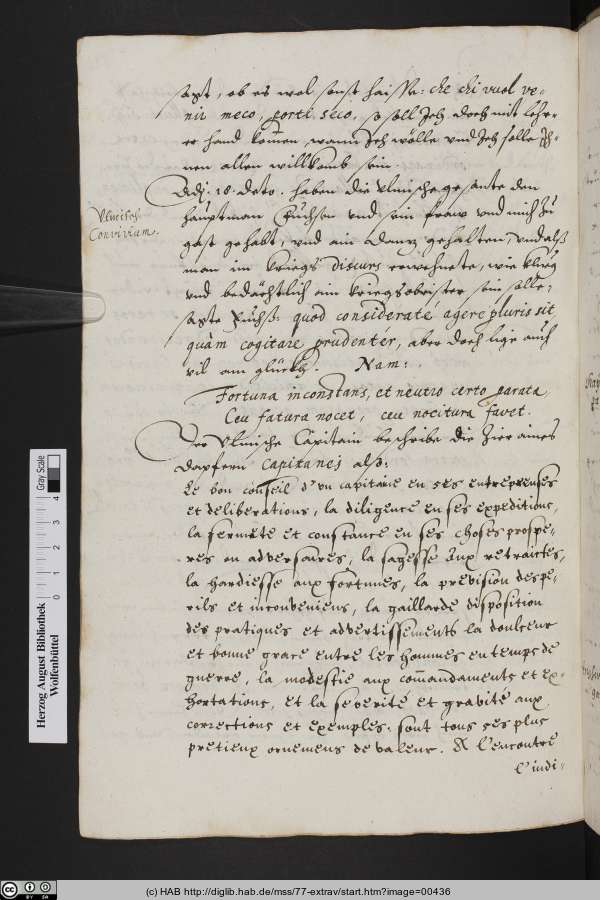 sagt, ob es wol sonst haisse: che chi vuol ve-
nir meco, porti seco, so soll Ich doch mit lehr-
er hand komen, wann Ich wölle vnd Ich solle Ih-
nen allen willkomb sein.
Adj. 18. deto. haben die Vlmische gesante den
Vlmisch
Convivium.
hauptman vnd sein fraw vnd mich zu
gast gehabt, vnd ain danz gehalten, vnd alß
man im kriegs discurs erwehnete, wie klug
vnd bedächtlich ein kriegsobrister sein solle,
sagte quod consideraté agere pluris sit
quàm cogitare prudenter, aber doch lige auch
vil am glückh. Nam:
Fortuna inconstans, et neutro certo parata,
Ceu fatura nocet, ceu nocitura favet.
Der Vlmische Capitain beschribe die Zier aines
dapfern Capitaneis also:
Le bon conseil d'un capitaine en ses entreprenses
et deliberations, la diligence en ses expeditions,
la fermeté et constance en ses choses prospe-
res ou adversaires, la sagesse aux retraictes,
la hardiesse aux fortunes, la prevision des pe-
rils et inconveniens, la gaillarde disposition
des pratiques et advertissements la doulceur
et bonne grace entre les hommes en temps de
guerre, la modestie aux commandaments et ex-
hortations, et la severité et gravité aux
corrections et exemples, sont tous ses plus
pretieux ornemens de valeur. A l'encontre
l'indi-
Herzog August Bibliothek
Wolfenbüttel
Gray Scale
0 1 2 3 4
(c) HAB http://diglib.hab.de/mss/77-extrav/start.htm?image=00436